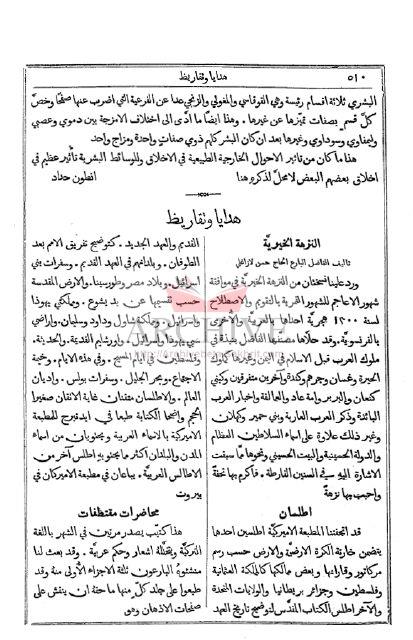 ٥١٠ هدايا وتقاريظ
البشري ثلاثة اقسام رئيسة وهي القوقاسي والمغولي والزنجي عدا عن الفرعية التي اضرب عنها صفحًا وخصّ
كلّ قسم بصفات تميّزها عن غيرها. وهذا ايضًا ما ادّى الى اختلاف الامزجة بين دموي وعصبي
وليمفاوي وسوداوي وغيرها بعد ان كان البشر كلهم ذوي صفات واحدة ومزاج واحد
هذا ما كان من تاثير الاحوال الخارجية الطبيعية في الاخلاق وللوسائط البشرية تأثير عظيم في
اخلاق بعضهم البعض لا محلّ لذكره هنا انطون حداد
هدايا وتقاريظ
النزهة الخيرية
تاليف الفاضل البارع الحاج حسن لازاغلي
ورد علينا نسختان من النزهة الخيرية في موافقة
شهور الاعاجم للشهور القمرية بالتقويم والاصطلاح
لسنة ١٣٠٠ هجرية احداها بالعربية والاخرى
بالفرنسوية. وقد حلّاها مصنفها الفاضل بنبذة في
ملوك العرب قبل الاسلام في اليمن وغيرها كملوك
الحيرة وغسان وجرهم وكندة وآخرين متفرقين وكبني
كنعان والبربر وامة عاد والعمالقة واخبار العرب
البائدة وذكر العرب العاربة وبني حمير وكهلان
وغير ذلك علاوة على اسماء السلاطين العظام
والدولة الحسينية والبيت الحسيني ونحوها ممّا سبقت
الاشارة اليه في السنين الفارطة. فاكرم بها تحفةً
واحبب بها نزهةً
اطلسان
قد اتحفتنا المطبعة الاميركيّة اطلسين احدها
يتضمن خارتة الكرة الارضيّة والارض حسب رسم
مركاتور وقاراتها وبعض ممالكها كالمملكة العثمانية
وفلسطين وجزائر بريطانيا والولايات المتحدة
والآخر اطلس الكتاب المقدّس لتوضيح تاريخ العهد
القديم والعهد الجديد. كتوضيح تفريق الامم بعد
الطوفان. وبلدانهم في العهد القديم. وسفرات بني
اسرائيل. وبلاد مصر وطورسينا. والارض المقدسة
حسب تقسيمها عن يد يشوع. ومملكتي يهوذا
واسرائيل. ومملكة شاول وداود وسليمان. واراضي
سبي يهوذا واسرائيل. واورشليم القديمة. والحديثة.
وفلسطين في ايام المسيح. وفي هذه الايام. وخيمة
الاجتماع. وبحر الجليل. وسفرات بولس. واديان
العالم. والاطلسان متقنان غاية الاتقان صغيرا
الحجم واضحا الكتابة طبعا في ايدنبرج للمطبعة
الاميركية بالاسماء العربية ويحتويان من اسماء
المدن والبلدان اكثر ما يحتويه اطلس آخر من
الاطالس العربيّة. يباعان في مطبعة الاميركان في
بيروت
محاضرات مقتطفات
هذا كتيّب يصدر مرتين في الشهر باللغة
التركيّة ويتخلّلهُ اشعار وحكم عربيّة. وقد بعث لنا
منشئوهُ البارعون ثلاثة الاجزاء الاولى منهُ وقد
طبعوا على جلد كلّ منها ما حقهُ ان ينقش على
صفحات الاذهان وهو
ARCHIVE